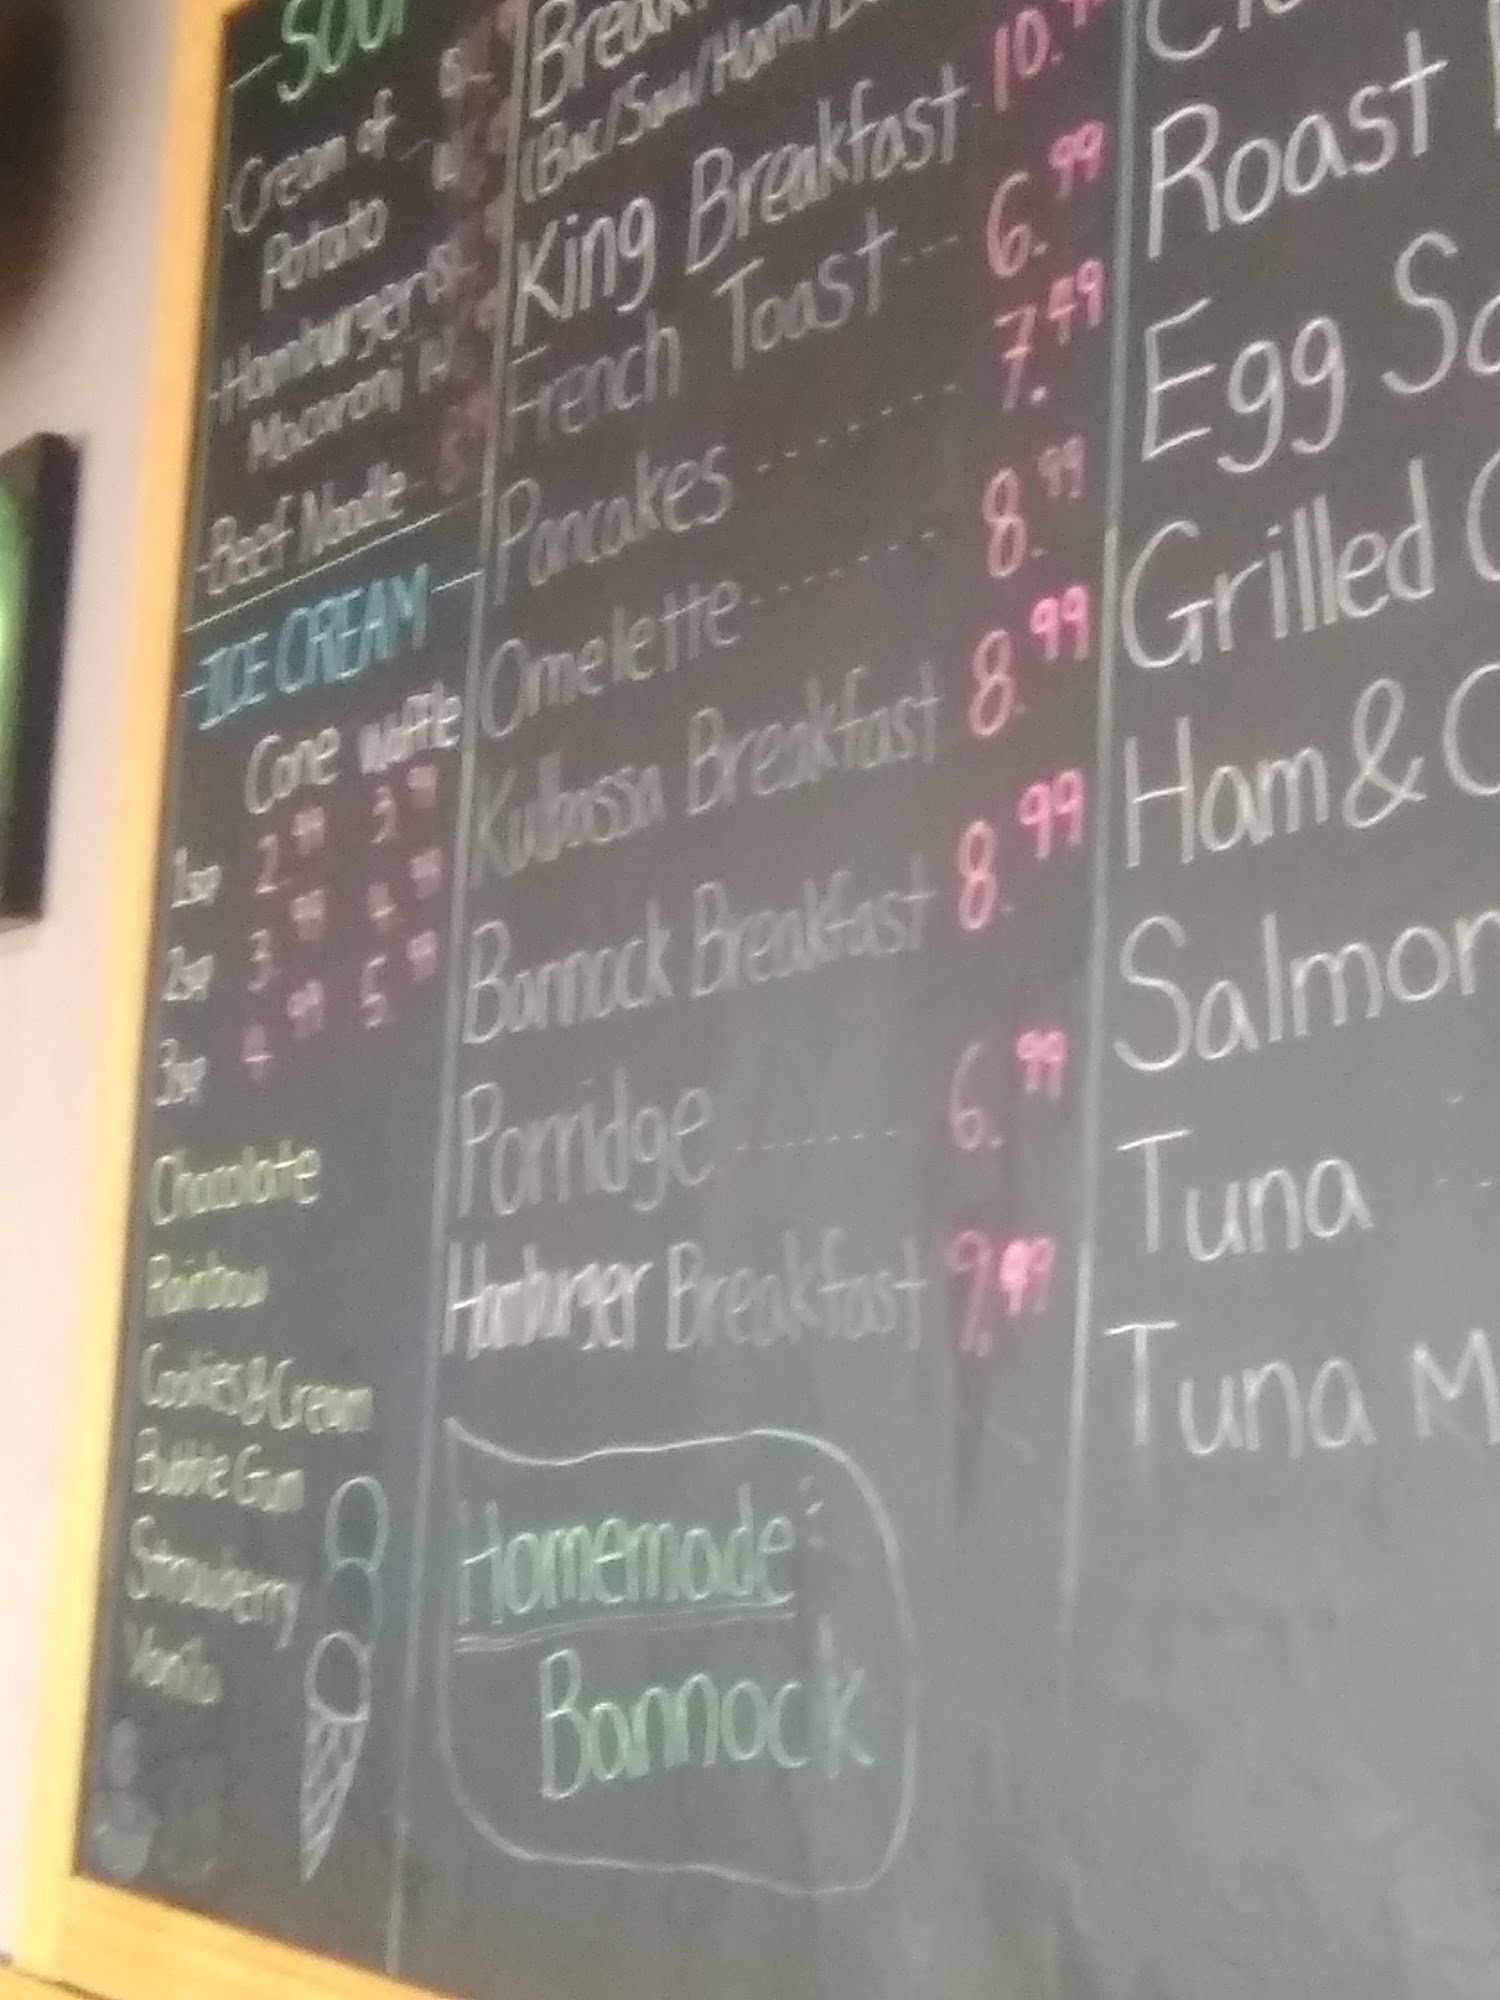 SOUP
Cream of
Potato
Hamburger
Macaroni
Beef Noodle
ICE CREAM
Cone Waffle
1sp 2.99 3.99
2sp 3.99 4.99
3sp 4.99 5.99
Chocolate
Rainbow
Cookies & Cream
Bubble Gum
Strawberry
Vanilla
(Bac/Saus/Ham/
King Breakfast 10.99
French Toast --- 6.99
Pancakes ------- 7.49
Omelette ------- 8.99
Kulbassa Breakfast 8.99
Bannock Breakfast 8.99
Porridge ------- 6.99
Hamburger Breakfast 9.99
Homemade
Bannock
Roast
Egg
Grilled
Ham &
Salmon
Tuna
Tuna